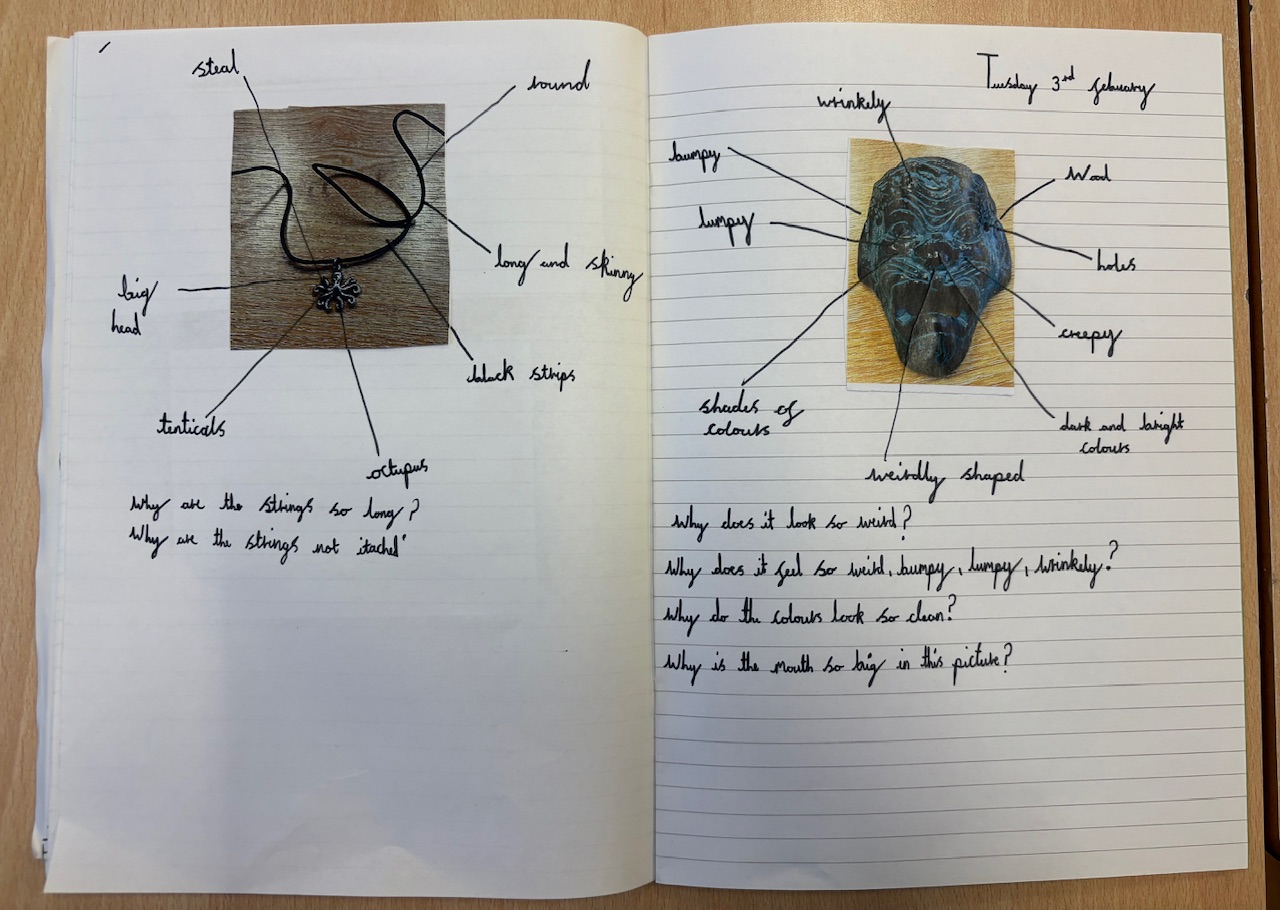 steal
round
big
head
long and skinny
black strips
tenticals
octupus
Why are the strings so long?
Why are the strings not itached
Tuesday 3rd febuary
wrinkely
bumpy
Wood
lumpy
holes
creepy
shades of
colours
dark and bright
colours
weirdly shaped
Why does it look so weird?
Why does it feel so weird, bumpy, lumpy, wrinkely?
Why do the colours look so clean?
Why is the mouth so big in this picture?